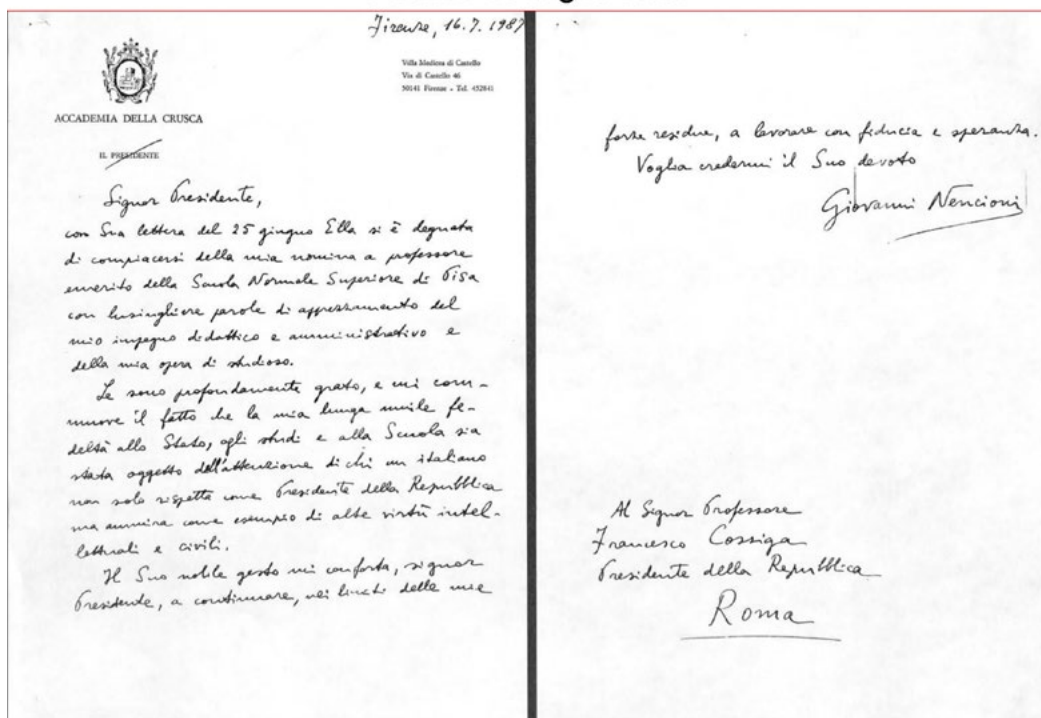 Firenze, 16.7.1987
Villa Medicea di Castello
Via di Castello 46
50141 Firenze - Tel. 452841
ACCADEMIA DELLA CRUSCA
IL PRESIDENTE
Signor Presidente,
con Sua lettera del 25 giugno Ella si è degnata
di compiacersi della mia nomina a professore
emerito della Scuola Normale Superiore di Pisa
con lusinghiere parole di apprezzamento del
mio impegno didattico e amministrativo e
della mia opera di studioso.
Le sono profondamente grato, e mi com-
muove il fatto che la mia lunga umile fe-
deltà allo Stato, agli studi e alla Scuola sia
stata oggetto dell'attenzione di chi un italiano
non solo rispetta come Presidente della Repubblica
ma ammira come esempio di alte virtù intel-
lettuali e civili.
Il Suo nobile gesto mi conforta, signor
Presidente, a continuare, nei limiti delle mie
forze residue, a lavorare con fiducia e speranza.
Voglia credermi il Suo devoto
Giovanni Nencioni
Al Signor Professore
Francesco Cossiga
Presidente della Repubblica
Roma